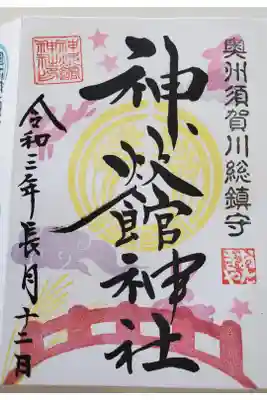 奥州須賀川総鎮守
神炊館神社
令和三年長月十二日